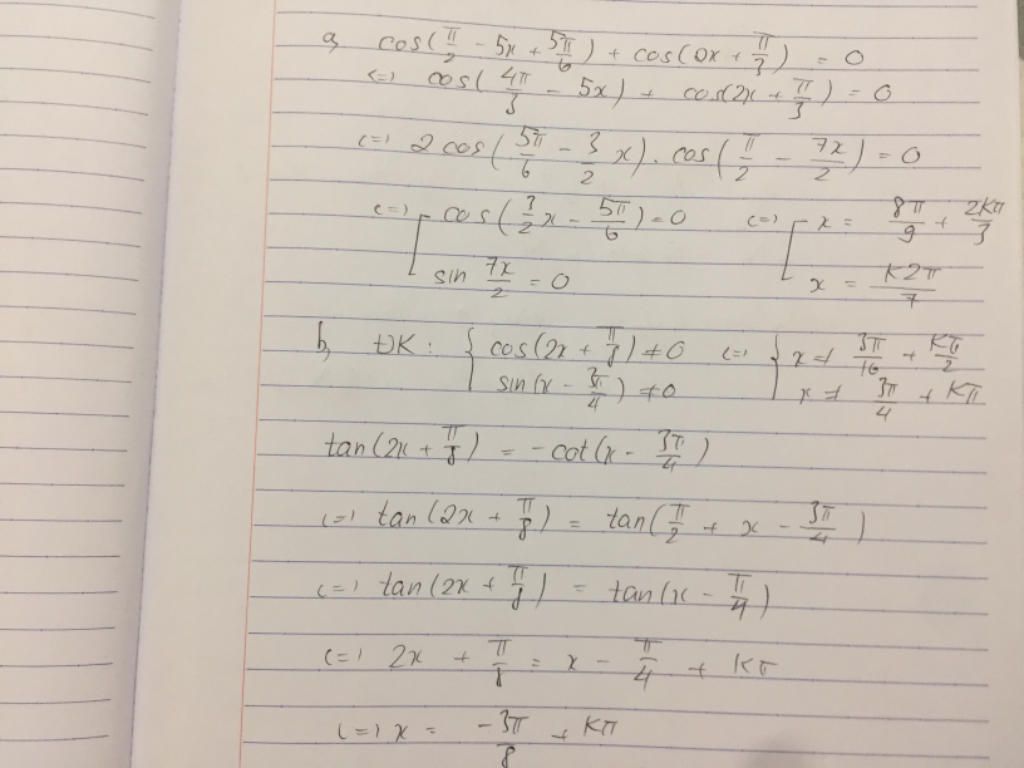 a, cos(π/2 - 5x + 5π/6) + cos(2x + π/3) = 0
<=> cos(4π/3 - 5x) + cos(2x + π/3) = 0
<=> 2cos(5π/6 - 3/2 x). cos(π/2 - 7x/2) = 0
<=> [ cos(3/2 x - 5π/6) = 0 <=> [ x = 8π/9 + 2Kπ/3
sin 7x/2 = 0 x = K2π/7
b, ĐK: { cos(2x + π/8) ≠ 0 <=> { x ≠ 3π/16 + Kπ/2
sin(x - 3π/4) ≠ 0 x ≠ 3π/4 + Kπ
tan(2x + π/8) = -cot(x - 3π/4)
<=> tan(2x + π/8) = tan(π/2 + x - 3π/4)
<=> tan(2x + π/8) = tan(x - π/4)
<=> 2x + π/8 = x - π/4 + Kπ
<=> x = -3π/8 + Kπ